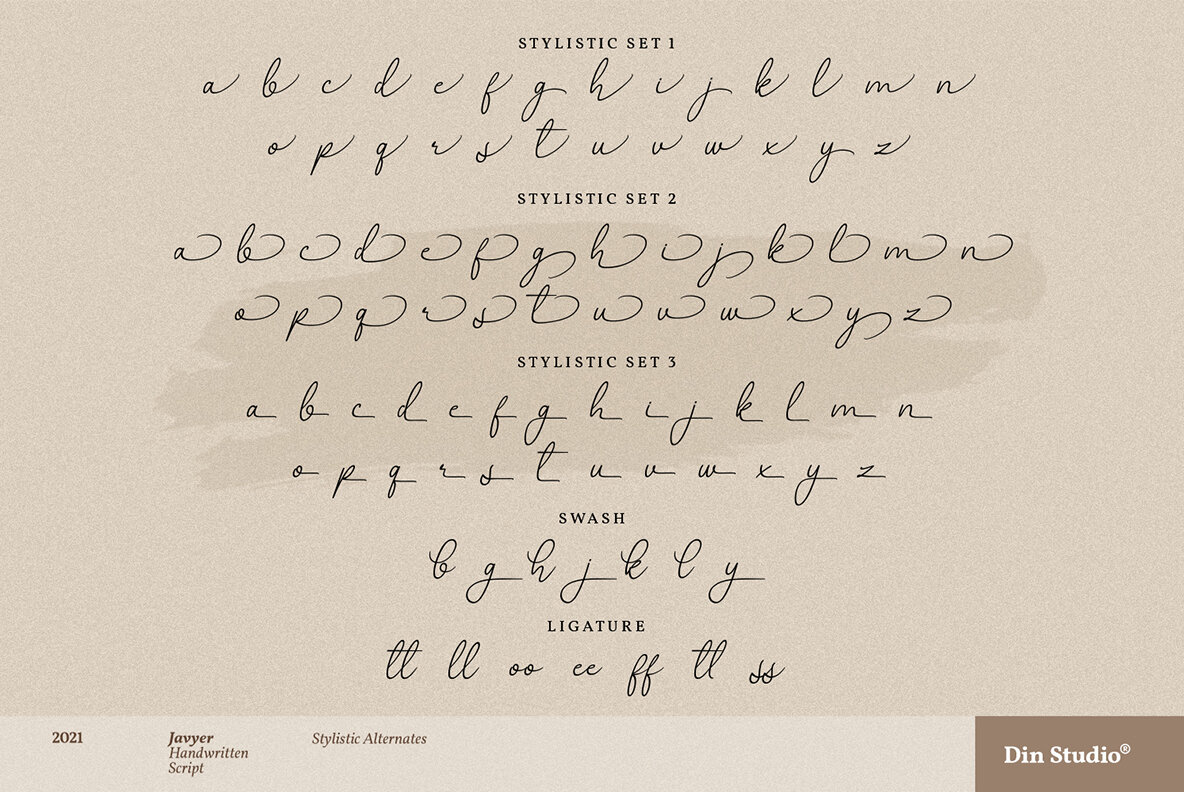 STYLISTIC SET 1
a b c d e f g h i j k l m n
o p q r s t u v w x y z
STYLISTIC SET 2
a b c d e f g h i j k l m n
o p q r s t u v w x y z
STYLISTIC SET 3
a b c d e f g h i j k l m n
o p q r s t u v w x y z
SWASH
b g h j k l y
LIGATURE
tt ll oo ee ff tl ss
2021
Javyer
Handwritten
Script
Stylistic Alternates
Din Studio®